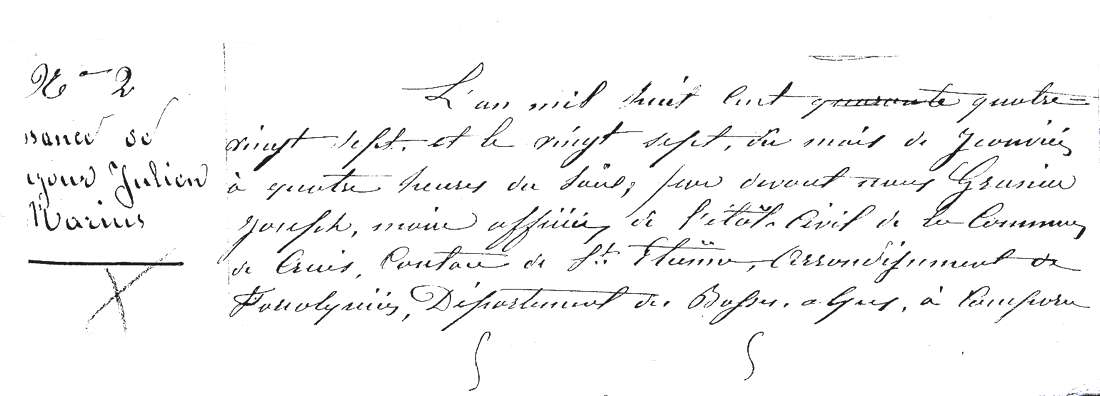 N° 2
ssance de
Julien
Marius
L'an mil huit cent quarante quatre
vingt sept, et le vingt sept, du mois de Janvier
à quatre heures du soir, par devant nous
Joseph, maire officier de l'état Civil de la Commune
de Cruis, Canton de St. Etienne, Arrondissement de
Forcalquier, Département des Basses-alpes, à comparu